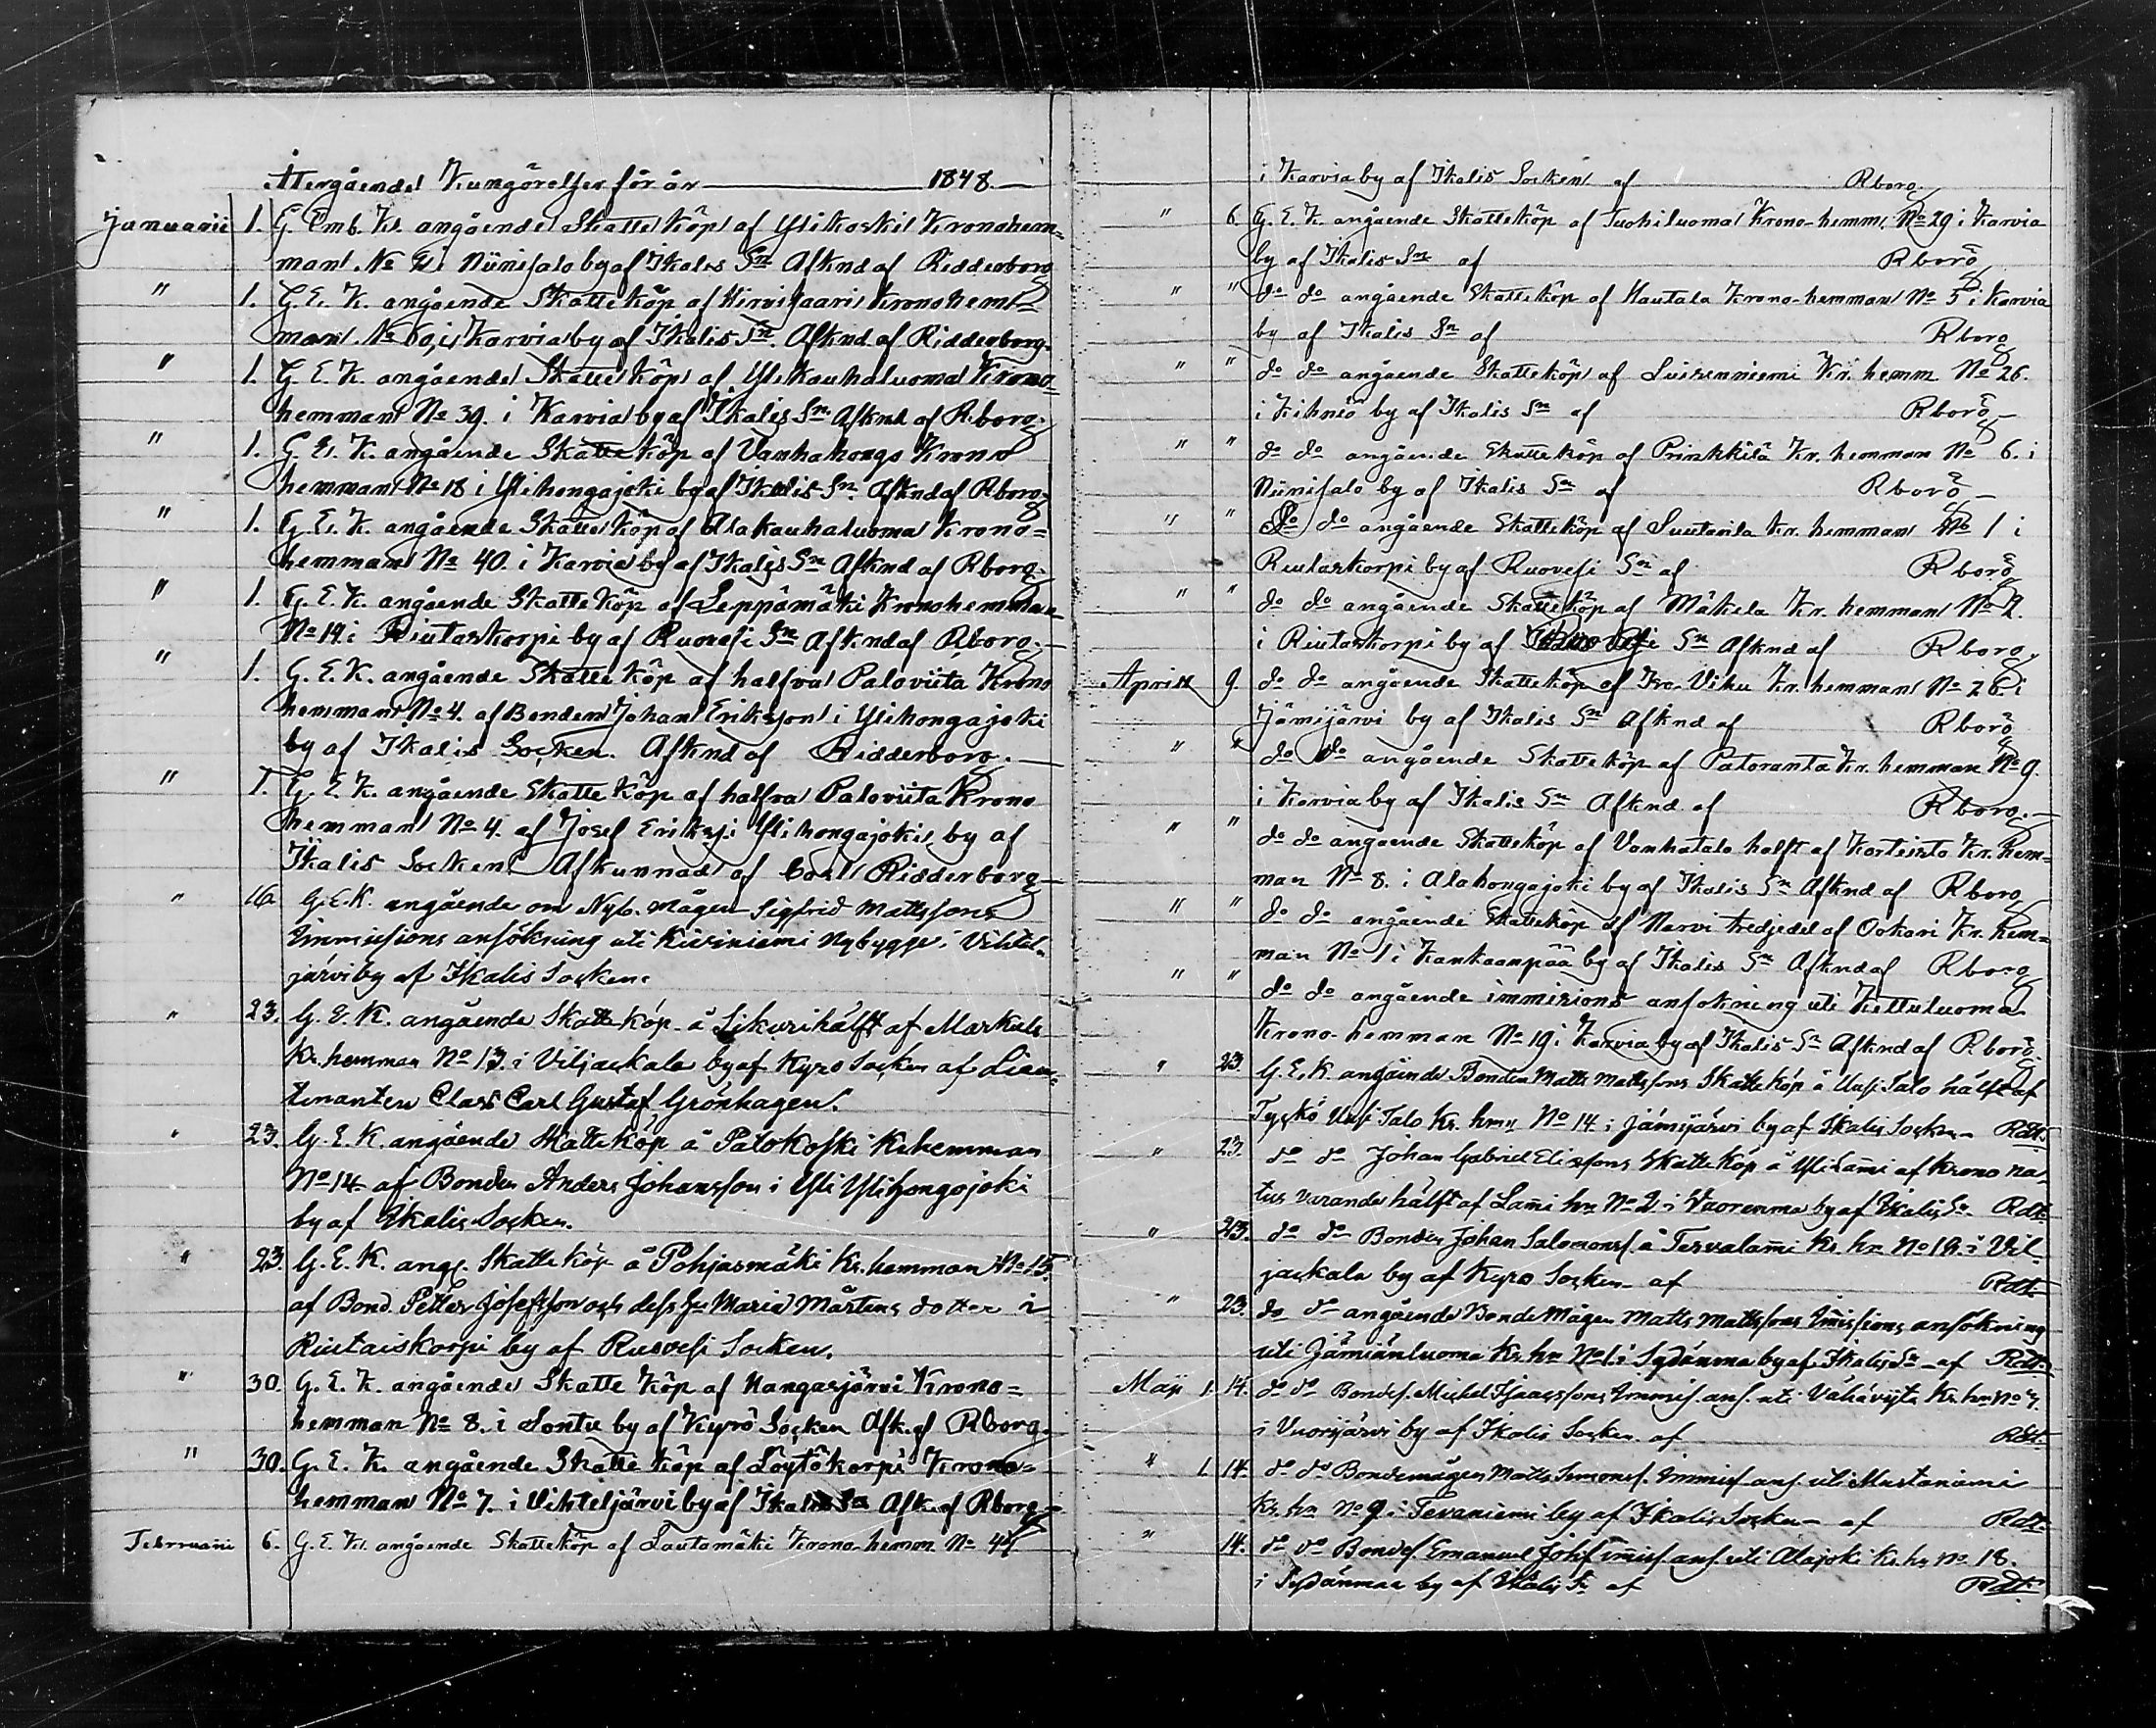 Återgående Kungörelser för år 1848.
Januarii 1. G. Emb. K. angående Skatte köp af Ylikoski Kronohem=
man No 2 i Niinisalo by af Ikalis Sn Afknd af Ridderborg
" 1. G. E. K. angående Skatte köp af Hirvisaari Kronohem=
man No 60, i Karvia by af Ikalis Sn. Afknd. af Ridderborg.
" 1. G. E. K. angående Skatte köp af Ylikauhaluoma Krono
hemman No 39. i Karvia by af Ikalis Sn. Afknd af Rborg.
" 1. G. E. K. angående Skatte köp af Vanhahongo Krono
hemman No 18 i Ylihongajoki by af Ikalis Sn. Afknd af Rborg.
" 1. G. E. K. angående Skatte köp af Alakauhaluoma Krono=
hemman No 40. i Karvia by af Ikalis Sn Afknd af Rborg.
" 1. G. E. K. angående Skatte köp af Leppämäki Kronohemman
No 14 i Riutaskorpi by af Ruovesi Sn Afknd af Rborg.
" 1. G. E. K. angående Skatte köp af halfva Paloviita Krono
hemman No 4. af Bonden Johan Eriksson i Ylihongajoki
by af Ikalis Socken. Afknd af Ridderborg.
" 1. G. E. K. angående Skatte köp af halfva Paloviita Krono
hemman No 4. af Josef Eriks. i Ylihongajoki by af
Ikalis Socken Afkunnad af Carl Ridderborg
" 16. G. E. K. angående om Nyb. mågen Sigfrid Mattssons
Immissions ansökning uti Kuriniemi Nybygge i Vihtel=
järvi by af Ikalis Socken.
" 23. G. E. K. angående Skatte köp å Sikuri hälft af Markula
Kr. hemman No 13. i Viljackala by af Kyro Socken af Lieu=
tenanten Clas Carl Gustaf Grönhagen.
" 23. G. E. K. angående Skatte köp å Palokoski Kr. hemman
No 14. af Bonden Anders Johansson i Yli Ylihongojoki
by af Ikalis Socken.
" 23. G. E. K. ang. Skatte köp å Pohjasmäki Kr. hemman No 15.
af Bond. Petter Josefsson och dess hu Maria Mårtens dotter i
Riutaiskorpi by af Ruovesi Socken.
" 30. G. E. K. angående Skatte köp af Hangasjärvi Krono=
hemman No 8. i Sontu by af Kyrö Socken Afk. af Rborg.
" 30. G. E. K. angående Skatte köp af Löytökorpi Krono=
hemman No 7. i Vihteljärvi by af Ikalis Sn Afk. af Rborg.
Februarii 6. G. E. K. angående Skatteköp af Lautamäki Krono hemm. No 44
i Karvia by af Ikalis Socken af Rborg.
" 6. G. E. K. angående Skatteköp af Tuohiluoma Krono-hemm. No 29 i Karvia
by af Ikalis Sn af Rborg
" " do do angående Skatteköp af Hautala Krono-hemman No 5 i Karvia
by af Ikalis Sn af Rborg
" " do do angående Skatteköp af Luirenniemi Kr. hemm No 26.
i Kihniö by af Ikalis Sn af Rborg
" " do do angående Skatteköp af Prinkkilä Kr. hemman No 6. i
Niinisalo by af Ikalis Sn af Rborg
" " do do angående Skatteköp af Suutarila Kr. hemman No 1 i
Riutaskorpi by af Ruovesi Sn af Rborg
" " do do angående Skatteköp af Mäkela Kr. hemman No 2.
i Riutaskorpi by af Sn Afknd af Rborg.
Aprill 9. do do angående Skatteköp af Viku Kr. hemman No 26 i
Jämijärvi by af Ikalis Sn Afknd af Rborg
" " do do angående Skatteköp af Patoranta Kr. hemman No 9.
i Karvia by af Ikalis Sn Afknd. af Rborg.
" " do do angående Skatteköp af Vanhatalo halft af Korteisto Kr. hem=
man No 8. i Alahongajoki by af Ikalis Sn Afknd af Rborg
" " do do angående Skatteköp af Narvi tredjedel af Ookari Kr. hem=
man No 1 i Kankaanpää by af Ikalis Sn Afknd af Rborg
" " do do angående immisions ansokning uti Kettuluoma
Krono-hemman No 19 i Karvia by af Ikalis Sn Afknd af Rborg.
" 23. G. E. K. angående Bonden Matts Mattssons Skatte köp å Uusi Talo hälft af
Tyskö Uusi Talo Kr. hmn No 14 i Jämijärvi by af Ikalis Socken Rdt.
" 23. do do Johan Gabriel Eliessons Skatte köp å Yli Lami af Krono na=
tur varande hälft af Lami hn No 2 i Vuorenmaa by af Ikalis Sn. Rdt.
" 23. do do Bonden Johan Salomonss. å Tervalami Kr. hn No 12. i Vil=
jackala by af Kyro Socken af Rdt.
" 23. do do angående Bonde Mågen Matts Mattssons Imissions ansökning
uti Jämiänluoma Kr. hn No 1. i Sydänma by af Ikalis Sn af Rdt.
Maji 1. 14. do do Bondes. Michel Isaacssons Immiss. ans. uti Vähäviita Kr. hn No 7.
i Vuorijärvi by af Ikalis Socken af Rdt.
" 1. 14. do do Bondemågen Matts Simonss. Immiss ans. uti Mustaniemi
Kr. hn No 9 i Tevaniemi by af Ikalis Socken af Rdt.
" 14. do do Bondes. Emanuel Johss imiss. ans. uti Alajoki Kr. hn No 18.
i Sydänmaa by af Ikalis Sn af Rdt.